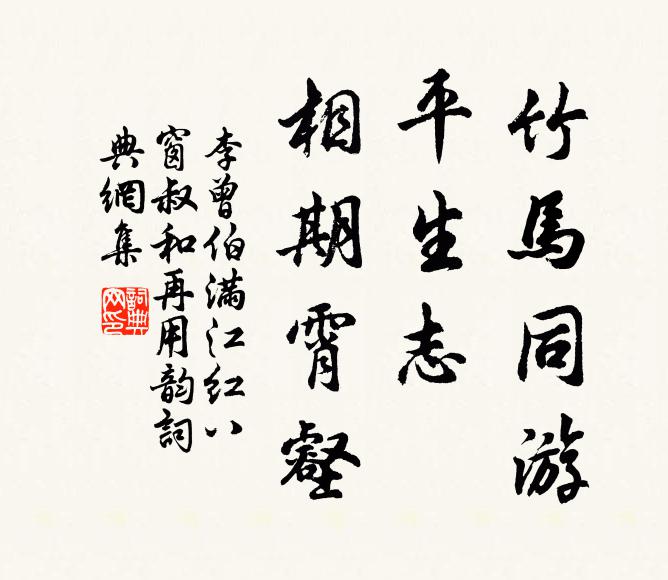 竹馬同游
平生志
相期霄壑
李曾伯滿江紅八
窗叔和再用韵詞
典網集
詞典網印